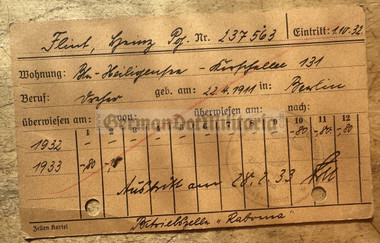 Flint, Heinz Pg. Nr. 237563 Eintritt: 1.10.32
Wohnung: Bln-Heiligensee - 131
Beruf: Dreher geb. am: 22.4.1911 in Berlin
überwiesen am: von: überwiesen am: nach:
GermanMilitaria
1 2 3 4 5 6 7 8 9 10 11 12
1932 -80 -80 -
1933 -80 -
Austritt am 28.2.33
Zellen Kartei Betriebszelle "Raboma"